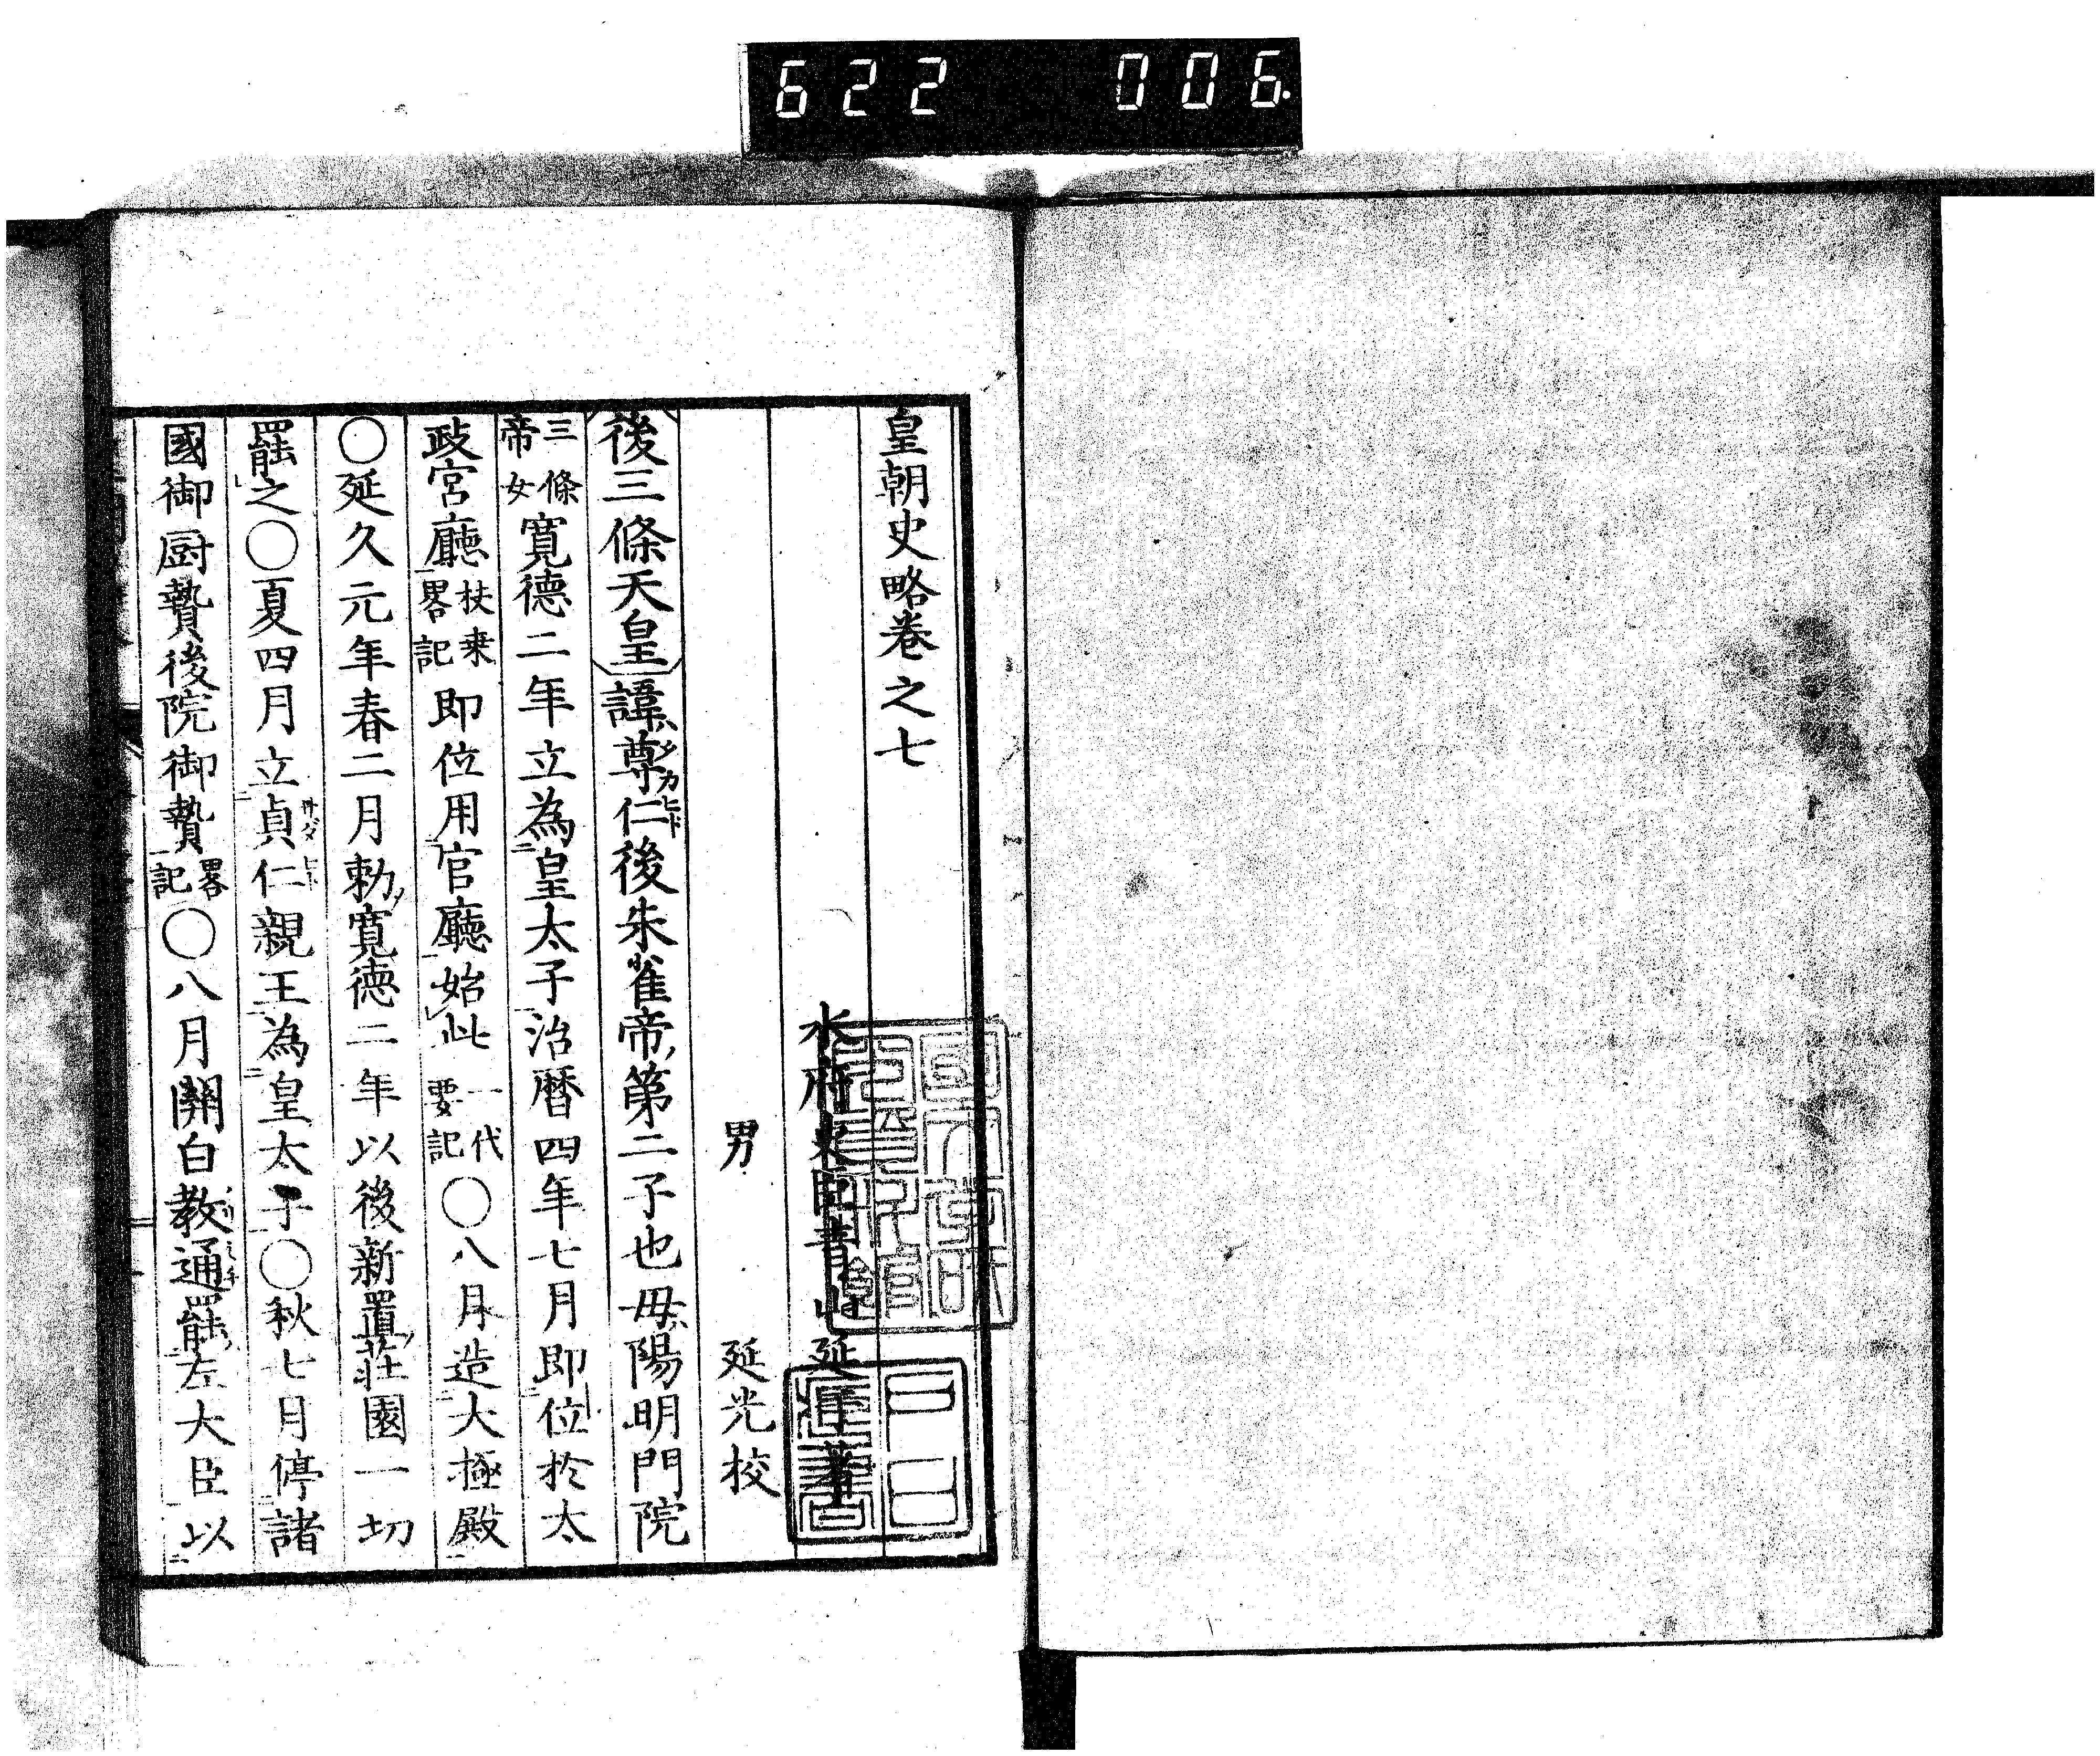 622 006.
皇朝史略卷之七
水府史臣青山延于著
男 延光校
後三條天皇諱尊仁後朱雀帝第二子也母陽明門院
三條帝女寛德二年立為皇太子治暦四年七月即位於太
政官廳扶桒畧記即位用官廳始此一代要記〇八月造大極殿
〇延久元年春二月勅寛德二年以後新置莊園一切
罷之〇夏四月立貞仁親王為皇太子〇秋七月停諸
國御厨贄後院御贄畧記〇八月關白教通罷左大臣以